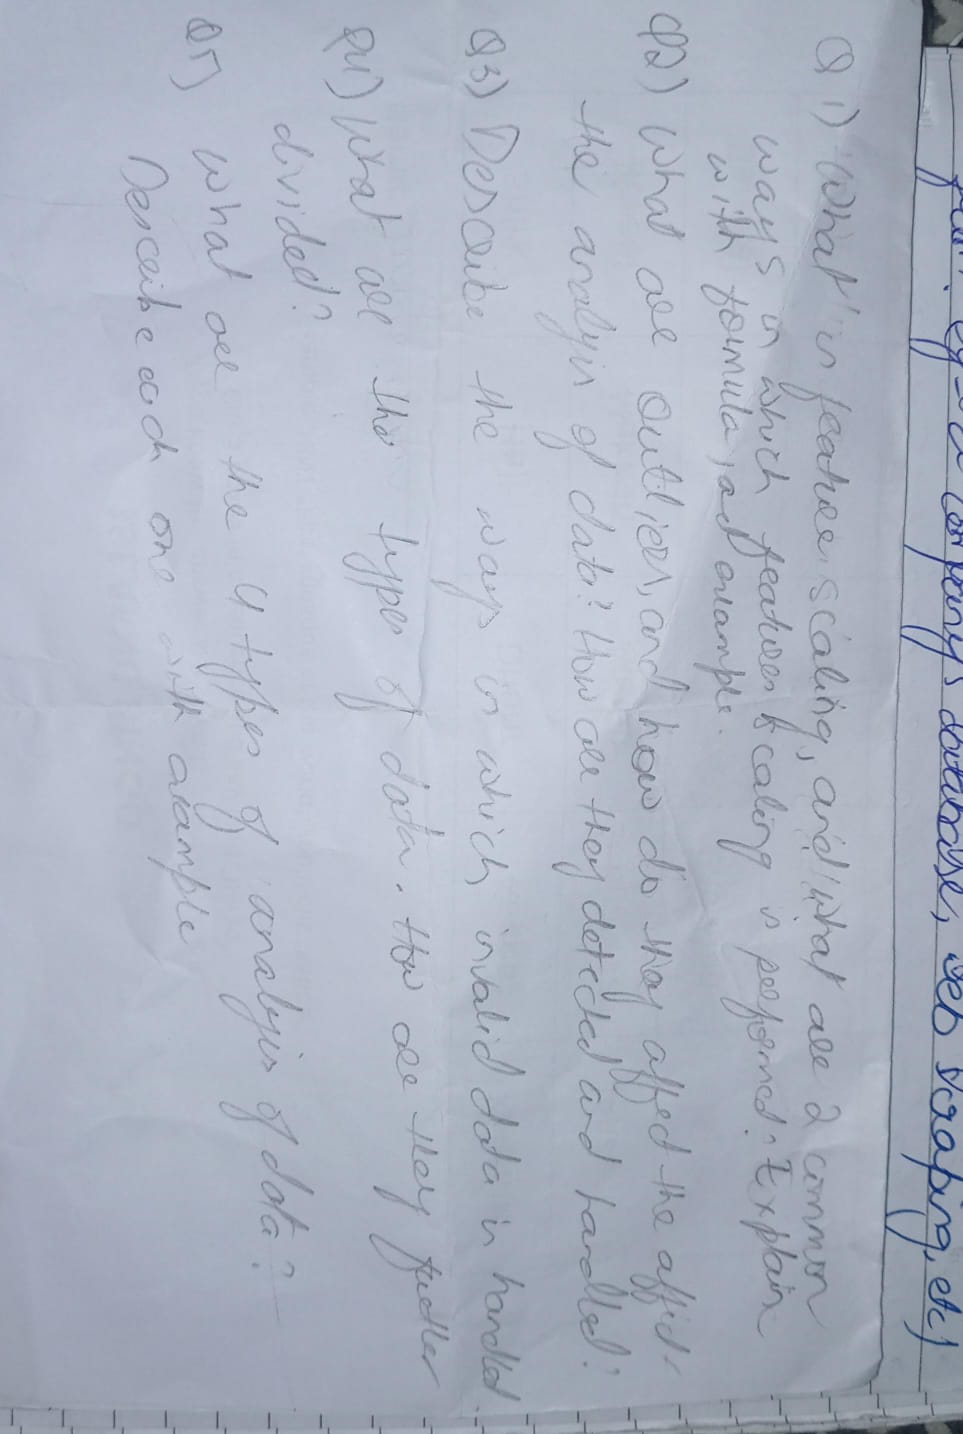 eg - a company's database, web scraping, etc)
Q 1) What is feature scaling, and what are 2 common
ways in which feature scaling is performed? Explain
with formula, and example.
Q2) What are outliers, and how do they affect the affect
the analysis of data? How are they detected and handled?
Q3) Describe the ways in which invalid data is handled.
Q4) What are the types of data. How are they further
divided?
Q5) What are the 4 types of analysis of data?
Describe each one with example